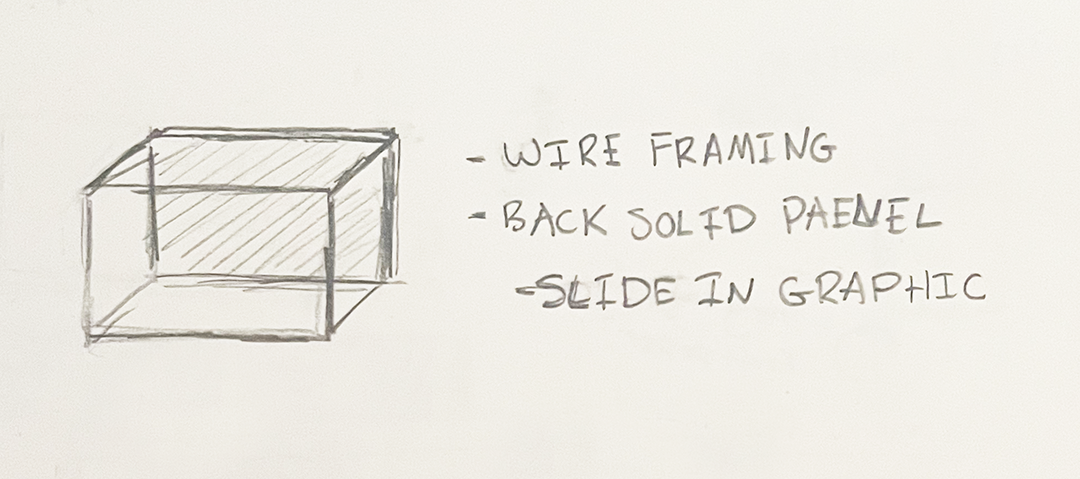 - WIRE FRAMING
- BACK SOLID PAENEL
- SLIDE IN GRAPHIC